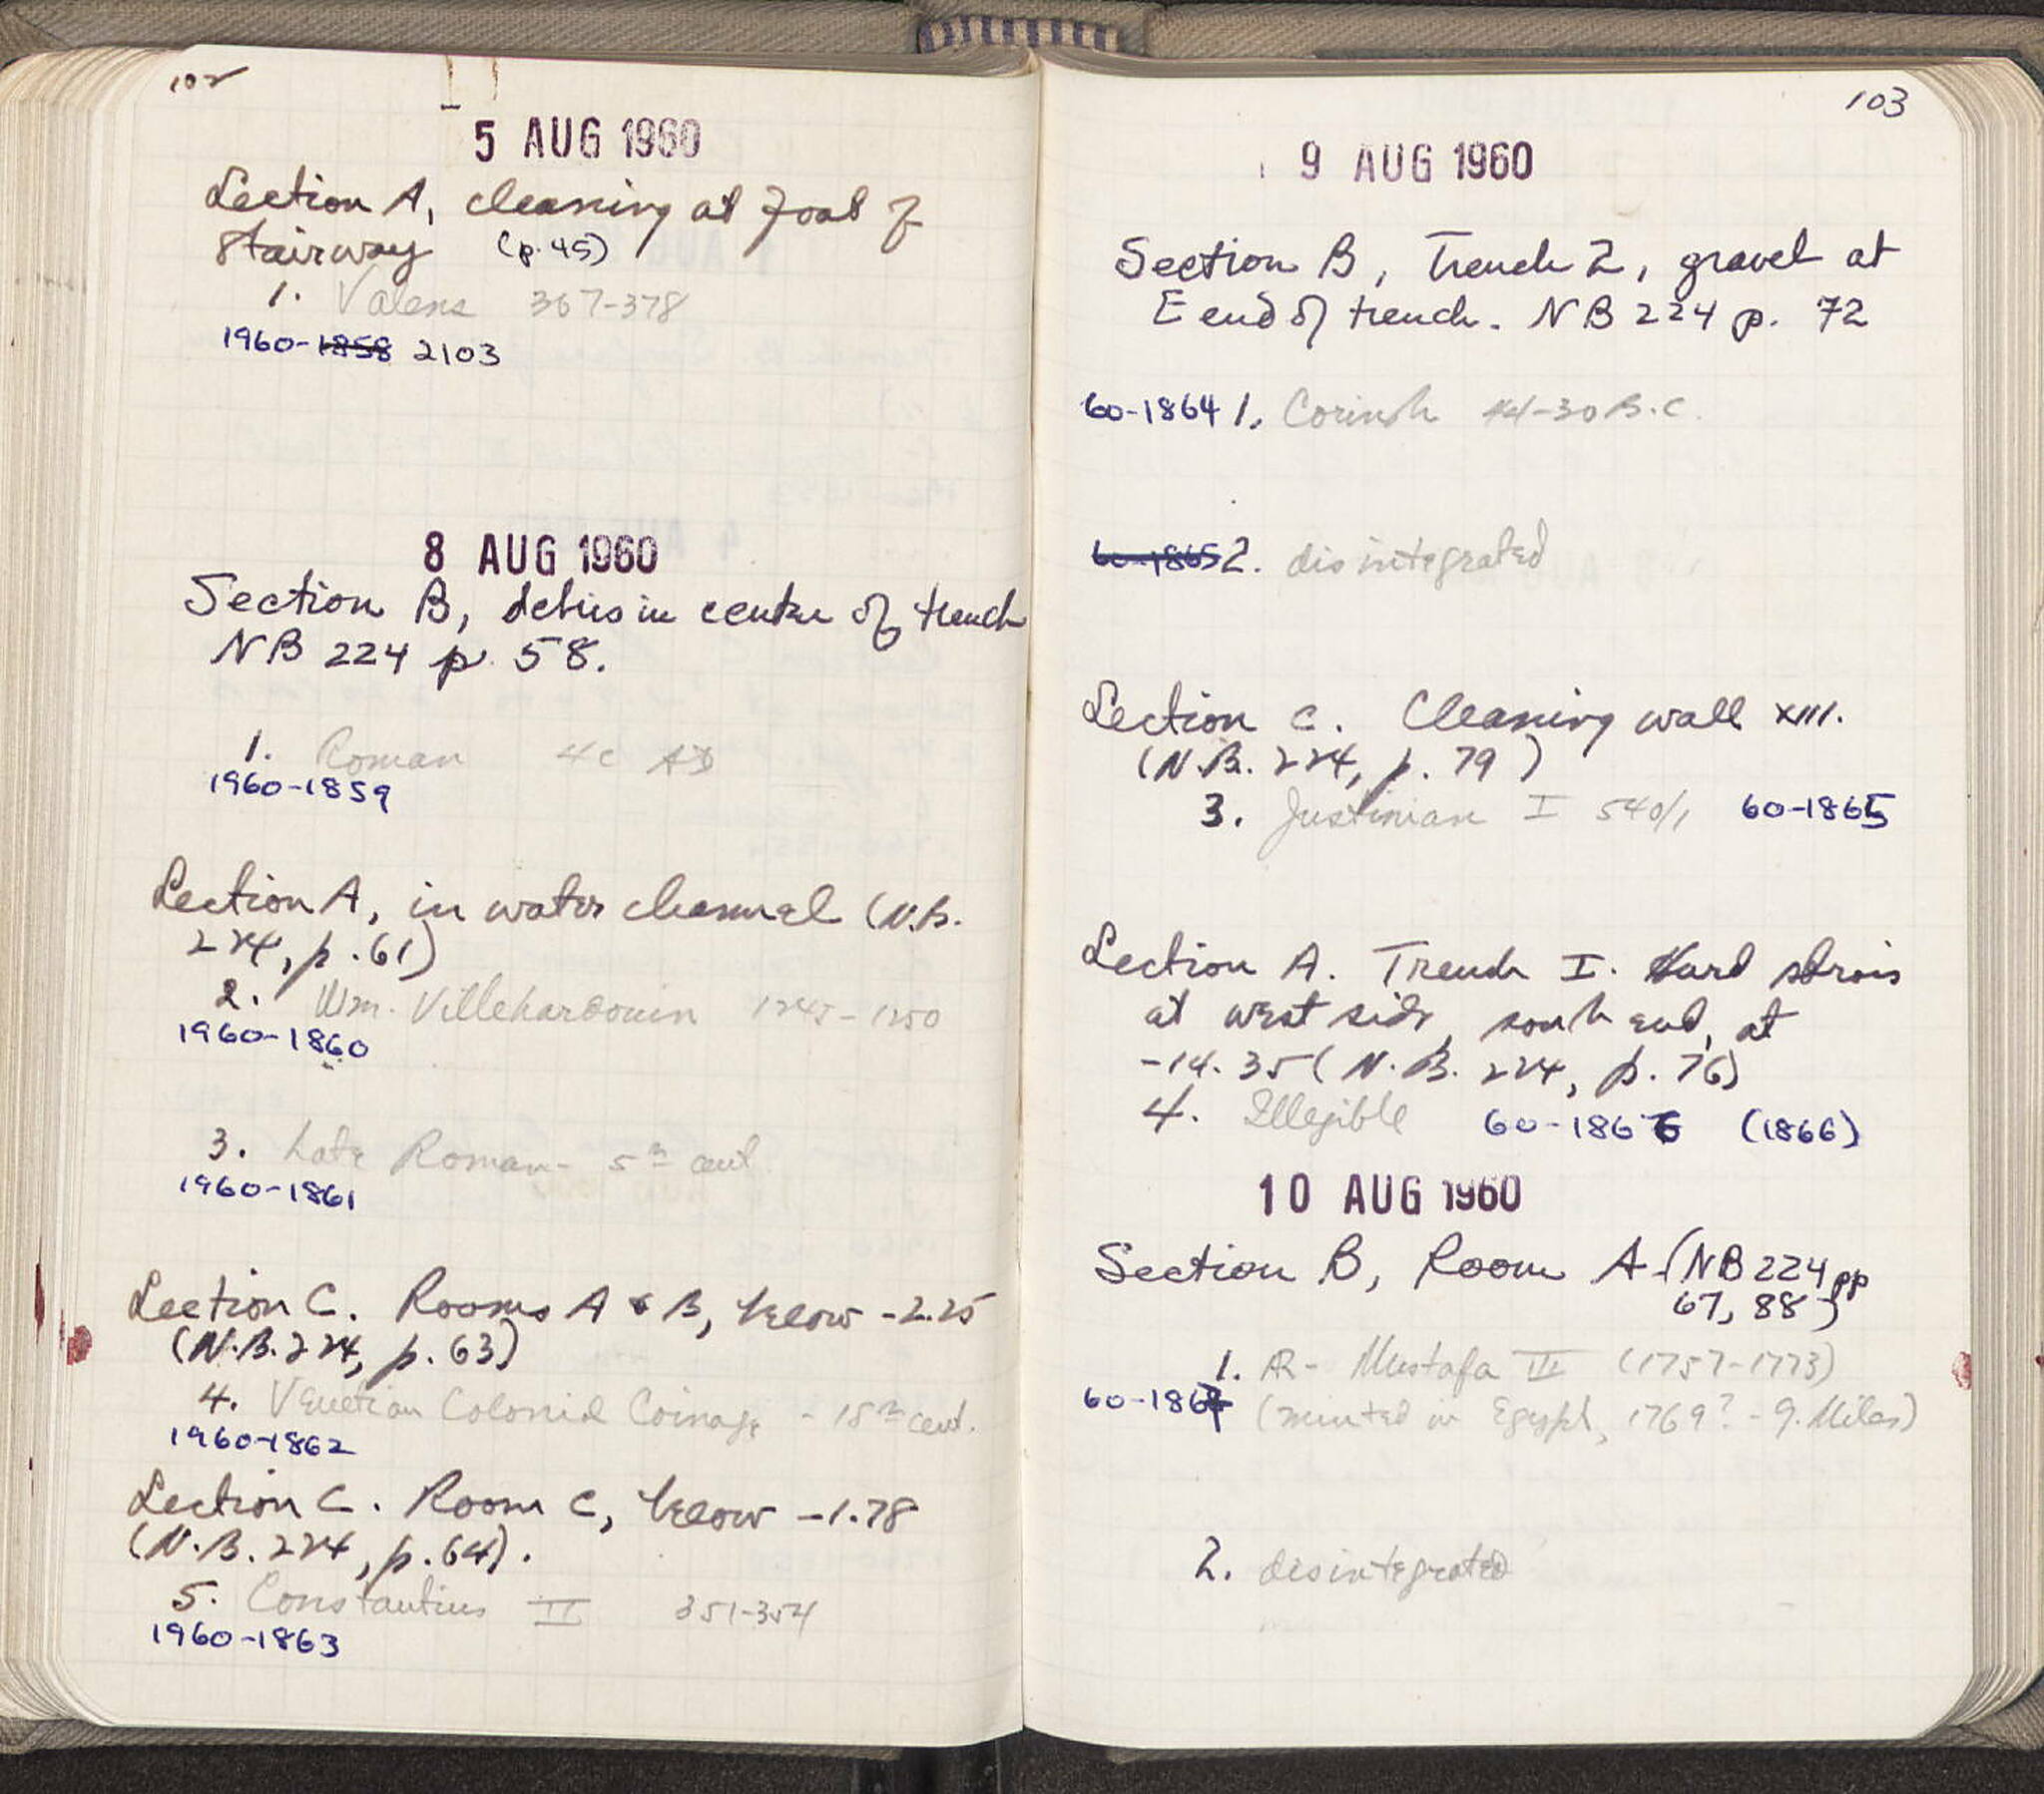 102
5 AUG 1960
Section A, cleaning at foot of
stairway (p. 45)
1. Valens 367-378
1960-1858 2103
8 AUG 1960
Section B, debris in center of trench
NB 224 p. 58.
1. Roman 4c AD
1960-1859
Section A, in water channel (N.B.
224, p. 61)
2. Wm. Villehardouin 1245-1250
1960-1860
3. Late Roman - 5th cent.
1960-1861
Section C. Rooms A & B, below -2.25
(N.B. 224, p. 63)
4. Venetian Colonial Coinage - 18th cent.
1960-1862
Section C. Room C, below -1.78
(N.B. 224, p. 64).
5. Constantius II 351-354
1960-1863
103
9 AUG 1960
Section B, Trench 2, gravel at
E end of trench. NB 224 p. 72
60-1864 1. Corinth 44-30 B.C.
60-1865 2. disintegrated
Section C. Cleaning wall XIII.
(N.B. 224, p. 79)
3. Justinian I 540/1 60-1865
Section A. Trench I. Hard
at west side, south end, at
-14.35 (N.B. 224, p. 76)
4. Illegible 60-1866 (1866)
10 AUG 1960
Section B, Room A (NB 224 pp
67, 88)
1. AR - Mustafa III (1757-1773)
60-1867 (minted in Egypt, 1769? - G. Miles)
2. disintegrated